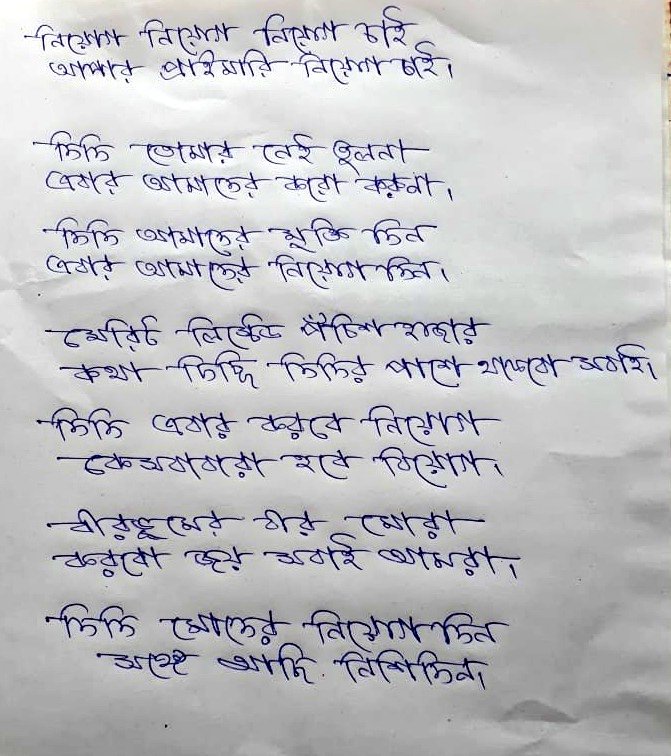 নিয়োগ নিয়োগ নিয়োগ চাই
আপার প্রাইমারি নিয়োগ চাই।
দিদি তোমার নেই তুলনা
এবার আমাদের করো করুনা।
দিদি আমাদের মুক্তি দিন
এবার আমাদের নিয়োগ দিন।
মেরিট লিস্টেড পঁচিশ হাজার
কথা দিচ্ছি দিদির পাশে থাকবো সবাই।
দিদি এবার করবে নিয়োগ
বেকাররা হবে বিয়োগ।
বীরভূমের বীর মোরা
করবো জয় সবাই আমরা।
দিদি মোদের নিয়োগ দিন
সঙ্গে আছি নিশিদিন।